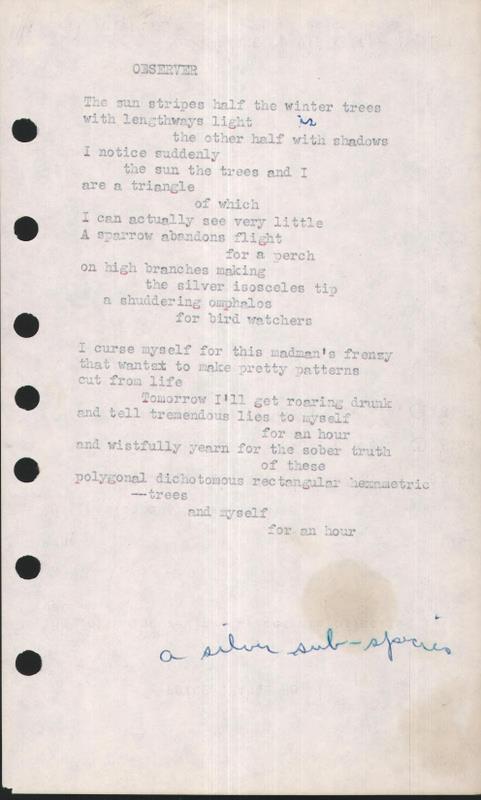 OBSERVER
The sun stripes half the winter trees
with lengthways light is
the other half with shadows
I notice suddenly
the sun the trees and I
are a triangle
of which
I can actually see very little
A sparrow abandons flight
for a perch
on high branches making
the silver isosceles tip
a shuddering omphalos
for bird watchers
I curse myself for this madman's frenzy
that wantsx to make pretty patterns
cut from life
Tomorrow I'll get roaring drunk
and tell tremendous lies to myself
for an hour
and wistfully yearn for the sober truth
of these
polygonal dichotomous rectangular hexametric
--trees
and myself
for an hour
a silver sub-species